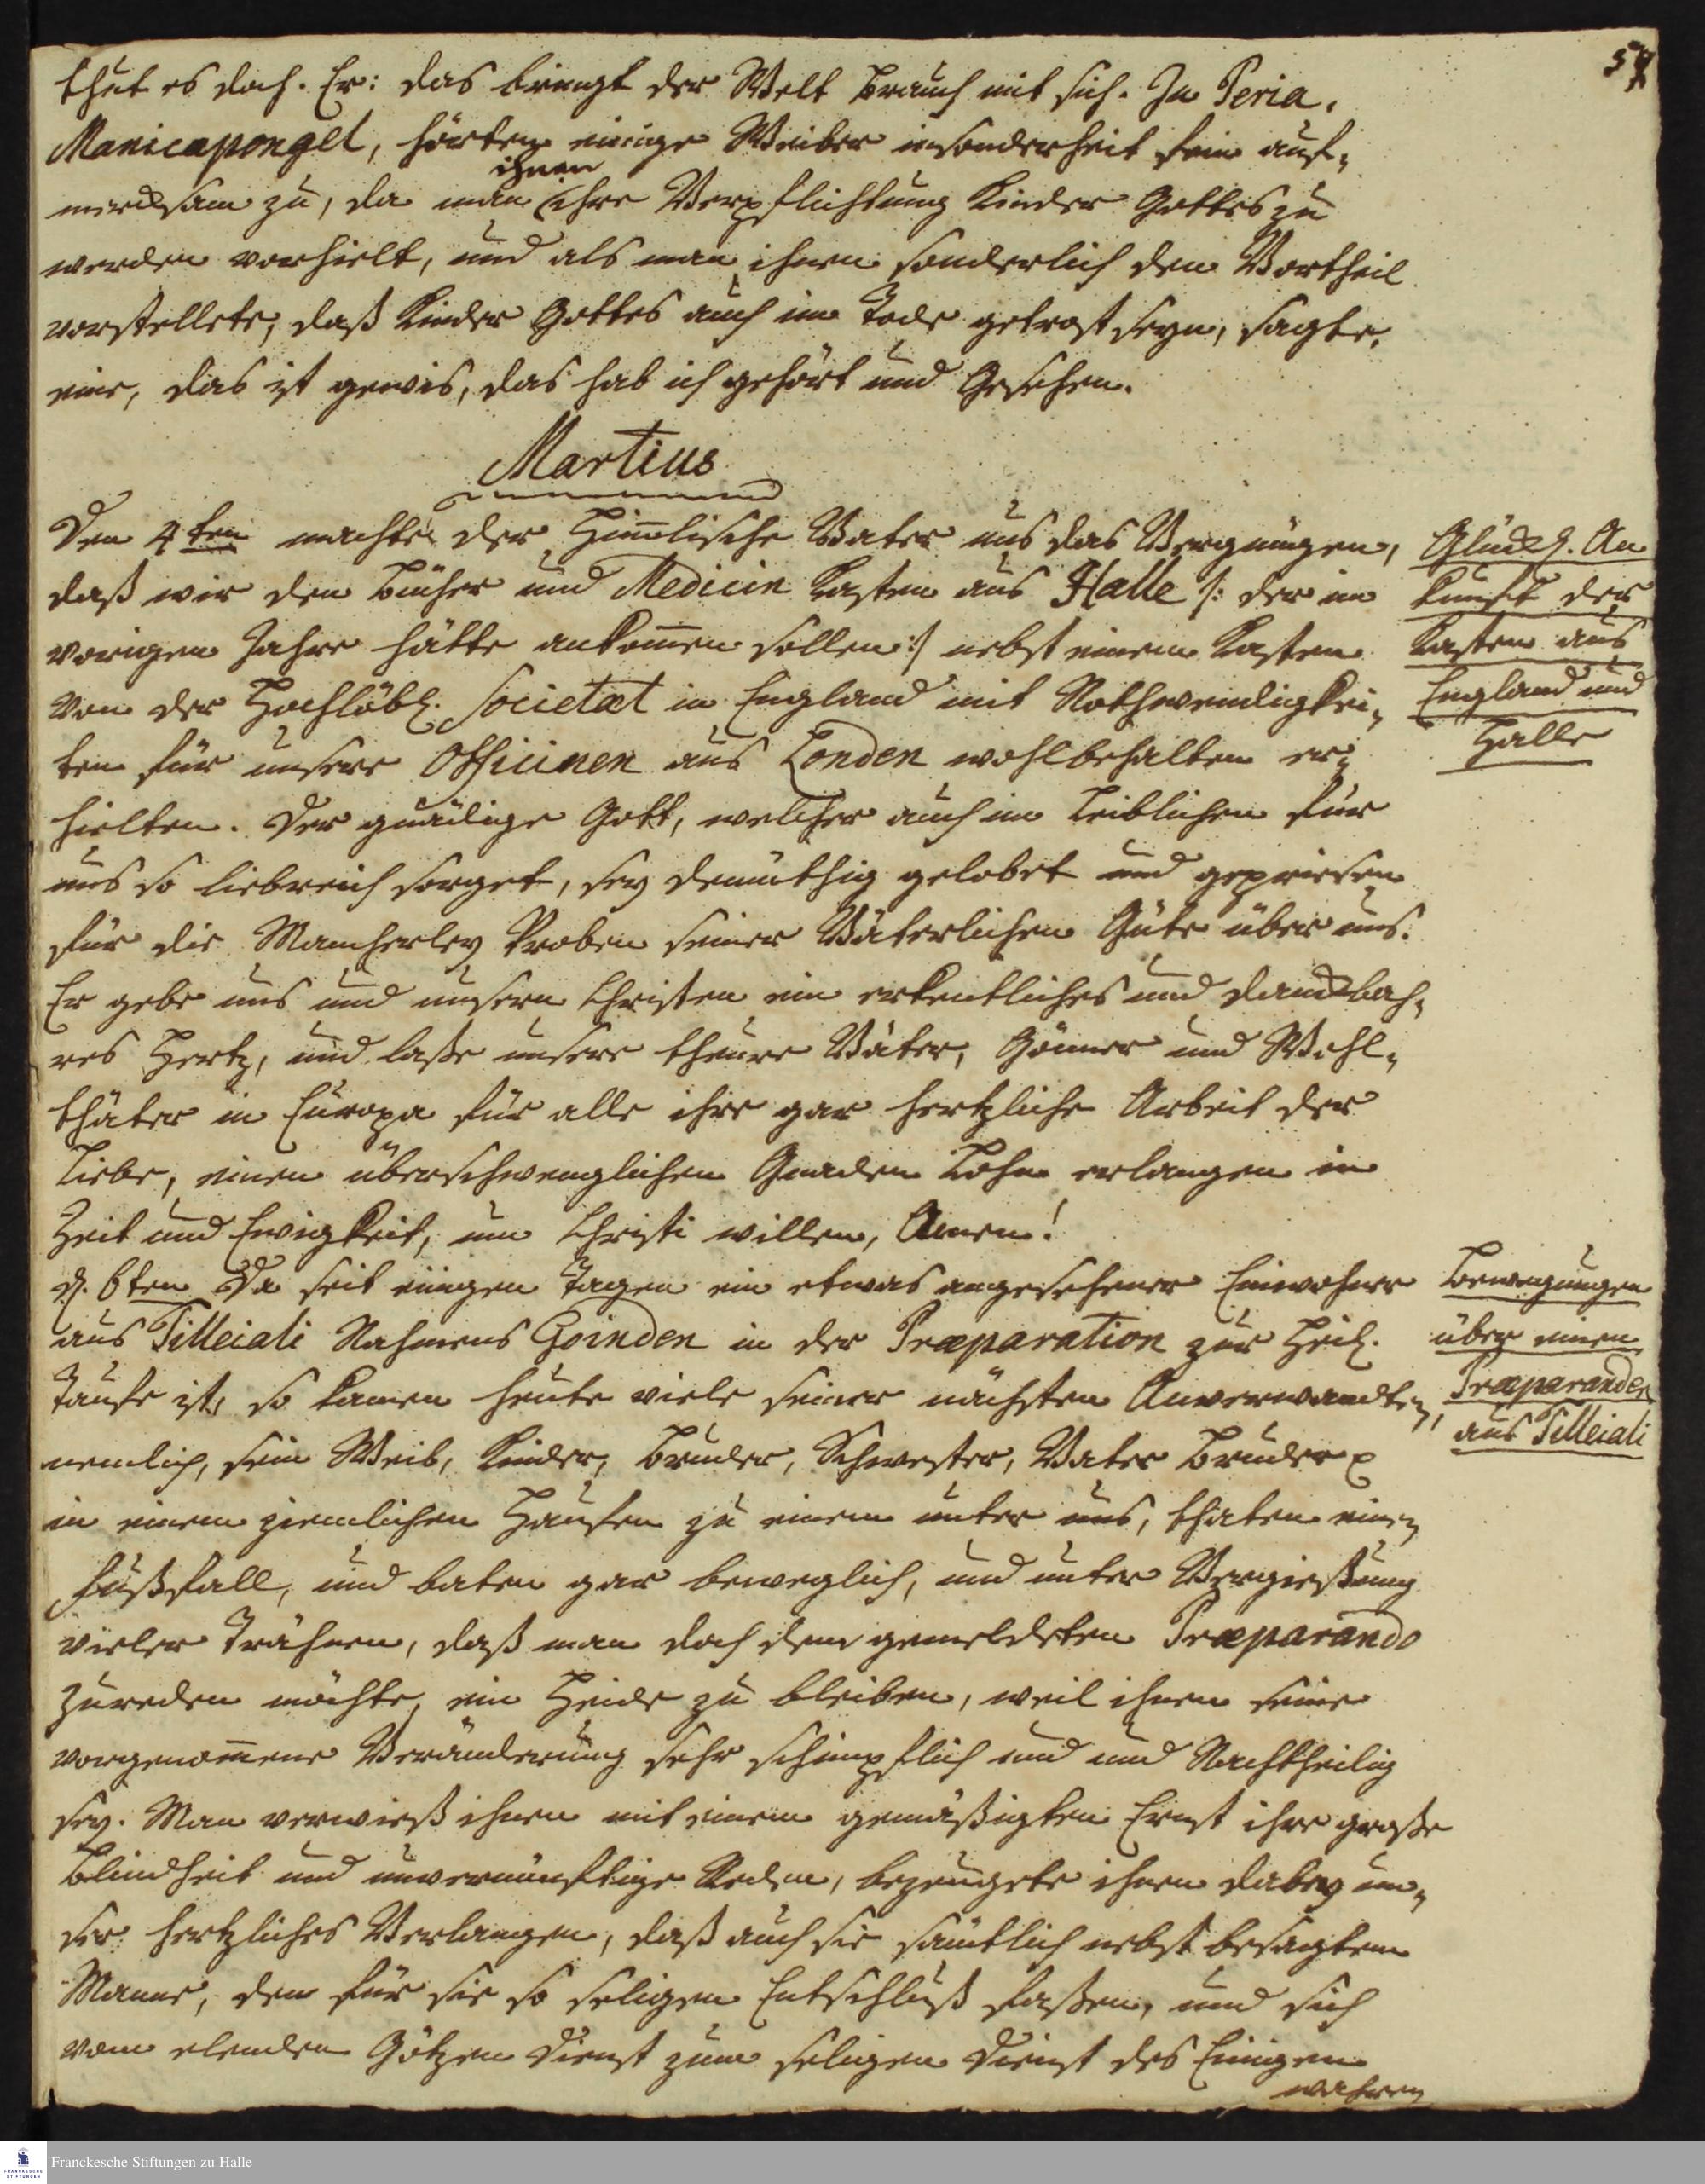 57
thut es doch. Er: das bringt der Welt Brauch mit sich. In Peria,
Manicapongel, hörten einige Weiber insonderheit fein auf-
mercksam zu, da man ihnen ihre Verpflichtung Kinder Gottes zu
werden vorhielt, und als man ihnen sonderlich den Vortheil
vorstellete, daß Kinder Gottes auch im Tode getrost seyn, sagte
eine, das ist gewis, das hab ich gehört und Gesehen.
Martius
Den 4ten machte der Him̄lische Vater uns das Vergnügen,
daß wir den Bücher und Medicin Kasten aus Halle /: der im
vorigen Jahre hätte ankom̄en sollen :/ nebst einem Kasten
von der Hochlöbl. Societæt in England mit Nothwendigkei-
ten für unsere Officinen aus Londen wohlbehalten er-
hielten. Der gnädige Gott, welcher auch im Leiblichen für
uns so liebreich sorget, sey demüthig gelobet und gepriesen
für die Mancherley Proben seiner Väterlichen Güte über uns.
Er gebe uns und unsern Christen ein erkentliches und danckbah-
res Hertz, und laße unsere theure Väter, Gönner und Wohl-
thäter in Europa für alle ihre gar hertzliche Arbeit der
Liebe, einen überschwenglichen Gnaden Lohn erlangen in
Zeit und Ewigkeit, um Christi willen, Amen!
d. 6ten Da seit einigen Tagen ein etwas angesehener Einwohner
aus Tilleiali Nahmens Goinden in der Præparation zur Heil.
Taufe ist, so kamen heute viele seiner nächsten Anverwandten,
nemlich, sein Weib, Kinder, Bruder, Schwester, Vater Bruder
in einem ziemlichen Haufen zu einem unter uns, thaten einen
Fußfall, und baten gar beweglich, und unter Vergießung
vieler Trähnen, daß man doch dem gemeldeten Præparando
zureden möchte, ein Heide zu bleiben, weil ihnen seine
vorgenom̄ene Veränderung sehr schimpflich und und Nachtheilig
sey. Man verwieß ihnen mit einem gemäßigten Ernst ihre große
Blindheit und unvernünftige Reden, bezeugete ihnen dabey un-
ser hertzliches Verlangen, daß auch sie sämtlich nebst besagtem
Manne, den für sie so seligen Entschluß faßen, und sich
vom elenden Götzen Dienst zum seligen Dienst des Einigen
wahren
Glückl. An
kunft der
Kasten aus
England und
Halle
Bewegungen
über einen
Præparanden
aus Tilleiali
Franckesche Stiftungen zu Halle